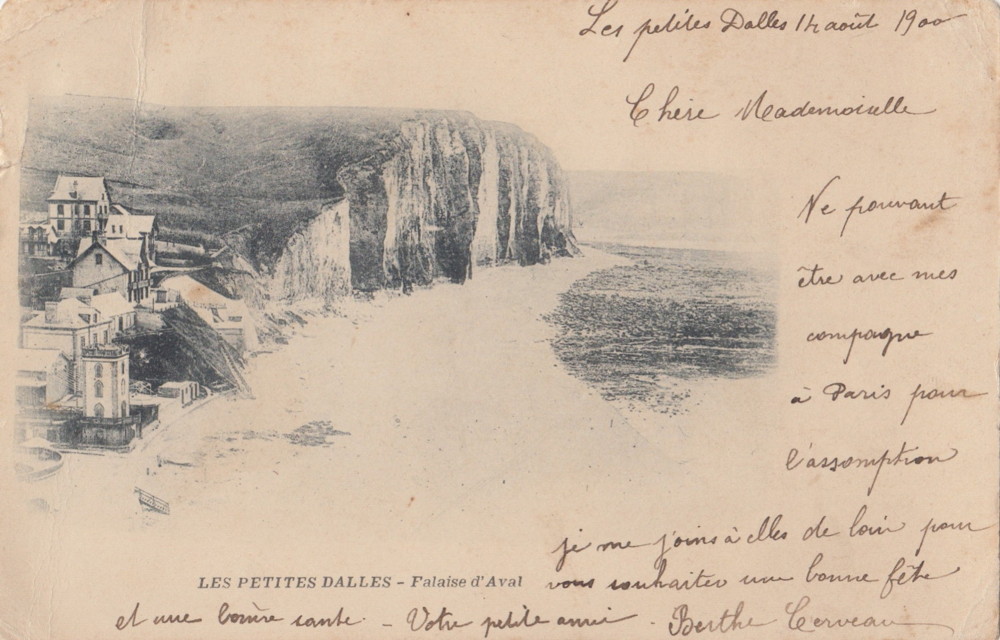 Les petites Dalles 14 août 1900
Chère Mademoiselle
Ne pouvant
être avec mes
compagne
à Paris pour
l'assomption
je me joins à elles de loin pour
vous souhaiter une bonne fête
et une bonne sante. - Votre petite amie. Berthe Cerveau
LES PETITES DALLES - Falaise d'Aval